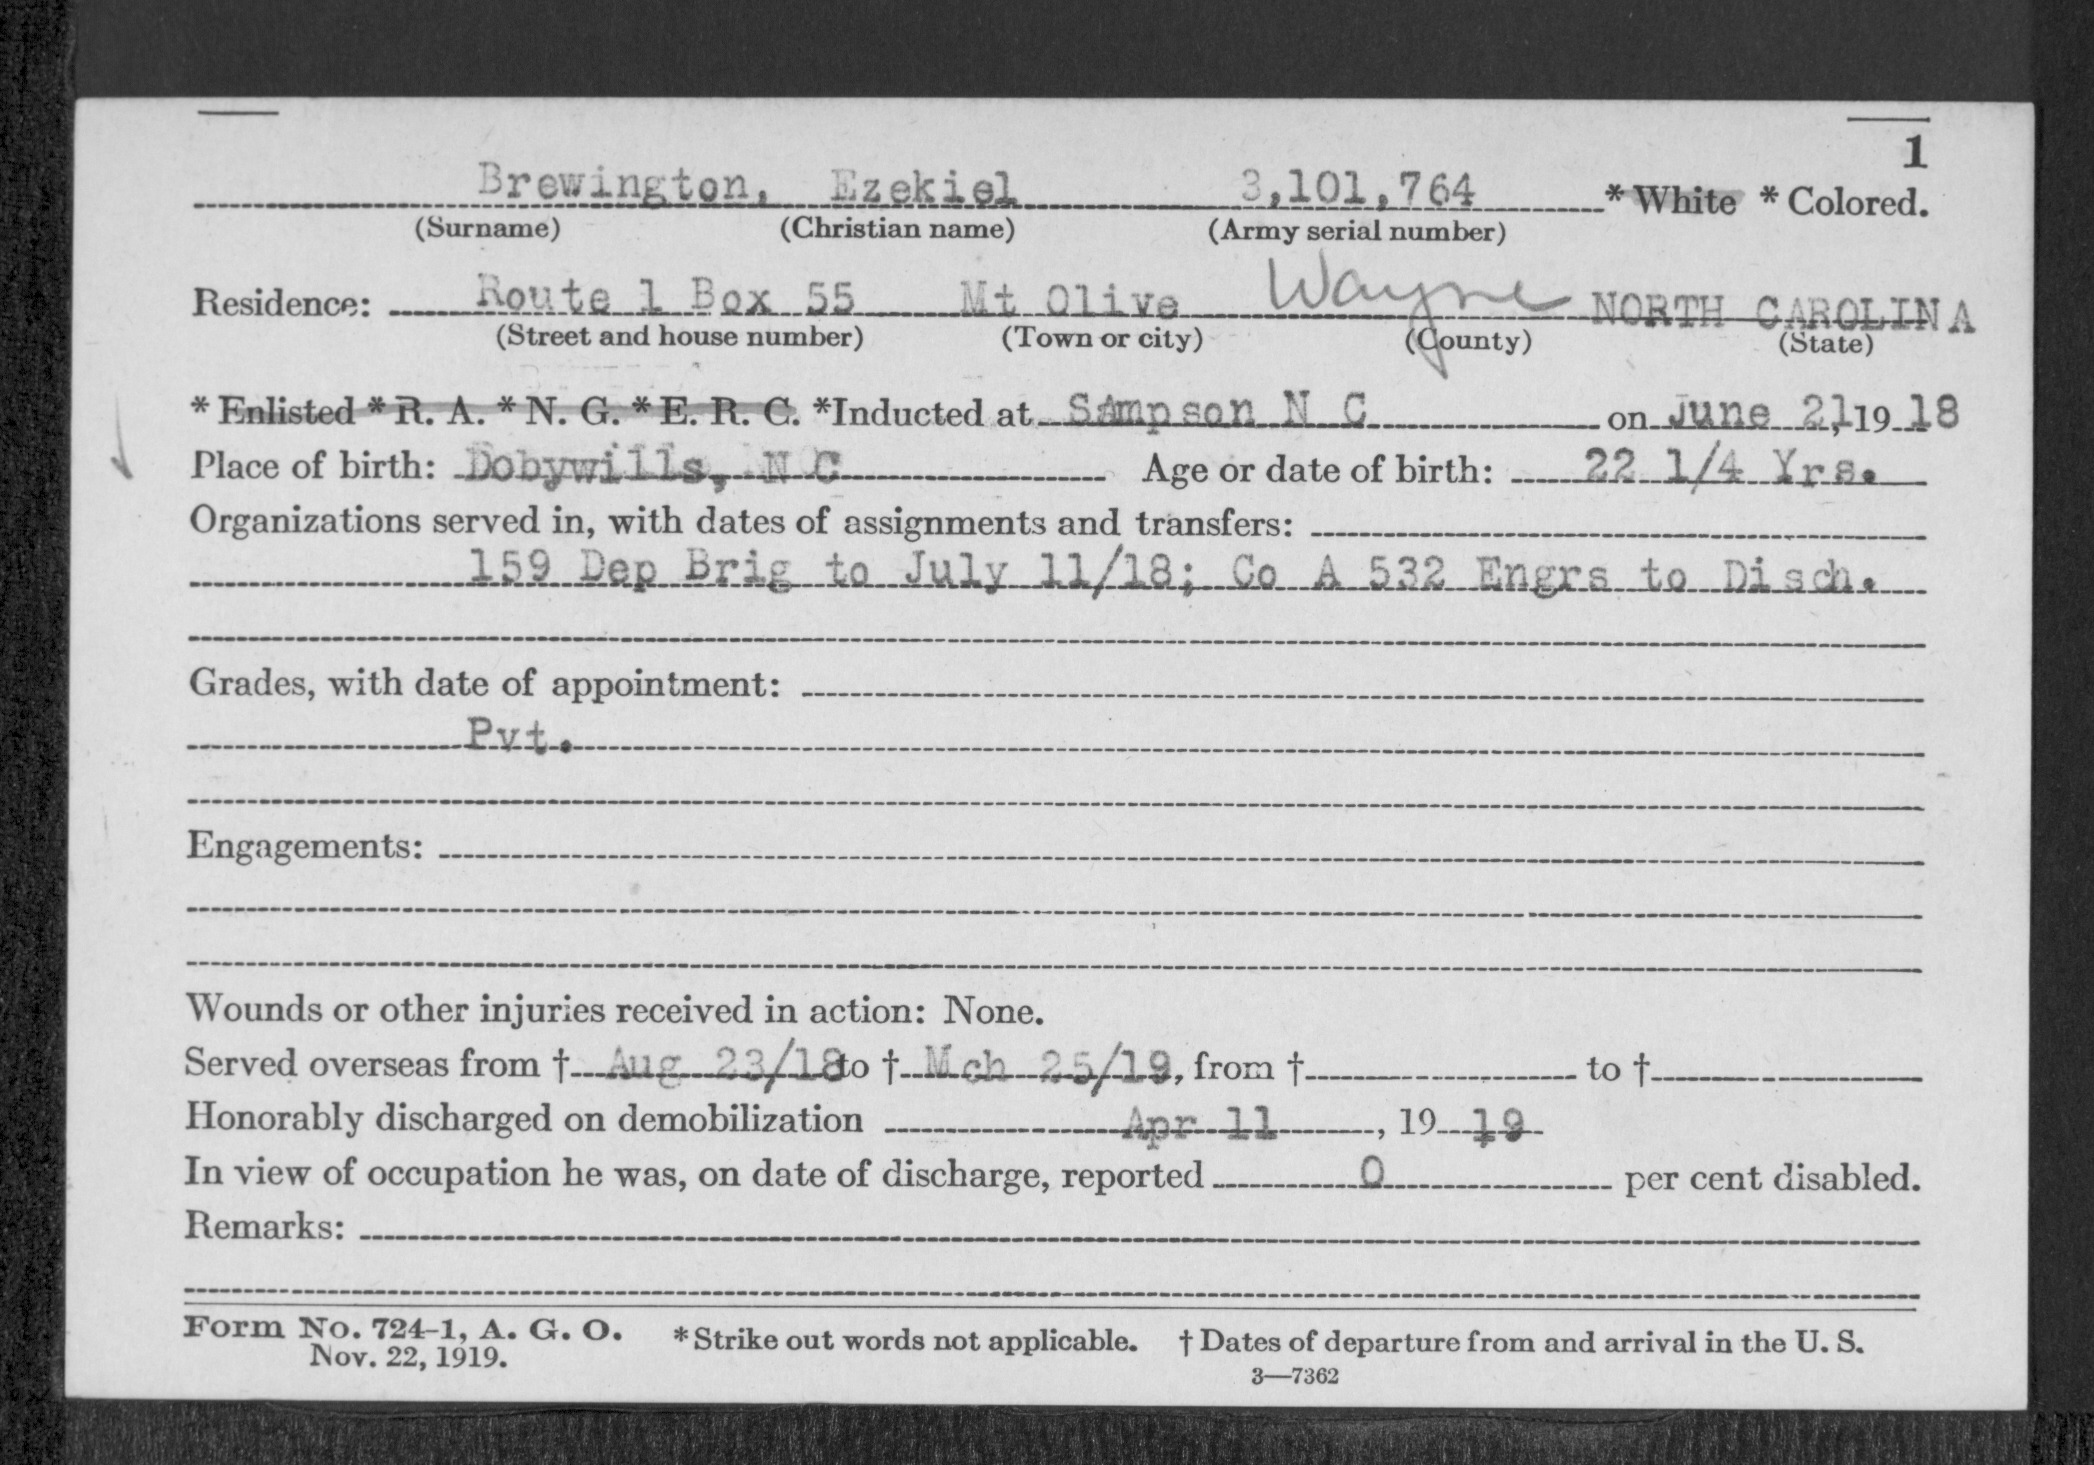 1
Brewington, Ezekiel 3,101,764 * White * Colored.
(Surname) (Christian name) (Army serial number)
Residence: Route 1 Box 55 Mt Olive Wayne NORTH CAROLINA
(Street and house number) (Town or city) (County) (State)
* Enlisted * R. A. * N. G. * E. R. C. *Inducted at SAmpson N C on June 21, 19 18
Place of birth: Dobywills, N C Age or date of birth: 22 1/4 Yrs.
Organizations served in, with dates of assignments and transfers:
159 Dep Brig to July 11/18; Co A 532 Engrs to Disch.
Grades, with date of appointment:
Pvt.
Engagements:
Wounds or other injuries received in action: None.
Served overseas from † Aug 23/18 to † Mch 25/19, from † to †
Honorably discharged on demobilization Apr 11, 19 19
In view of occupation he was, on date of discharge, reported 0 per cent disabled.
Remarks:
Form No. 724-1, A. G. O. * Strike out words not applicable. † Dates of departure from and arrival in the U. S.
Nov. 22, 1919.
3—7362